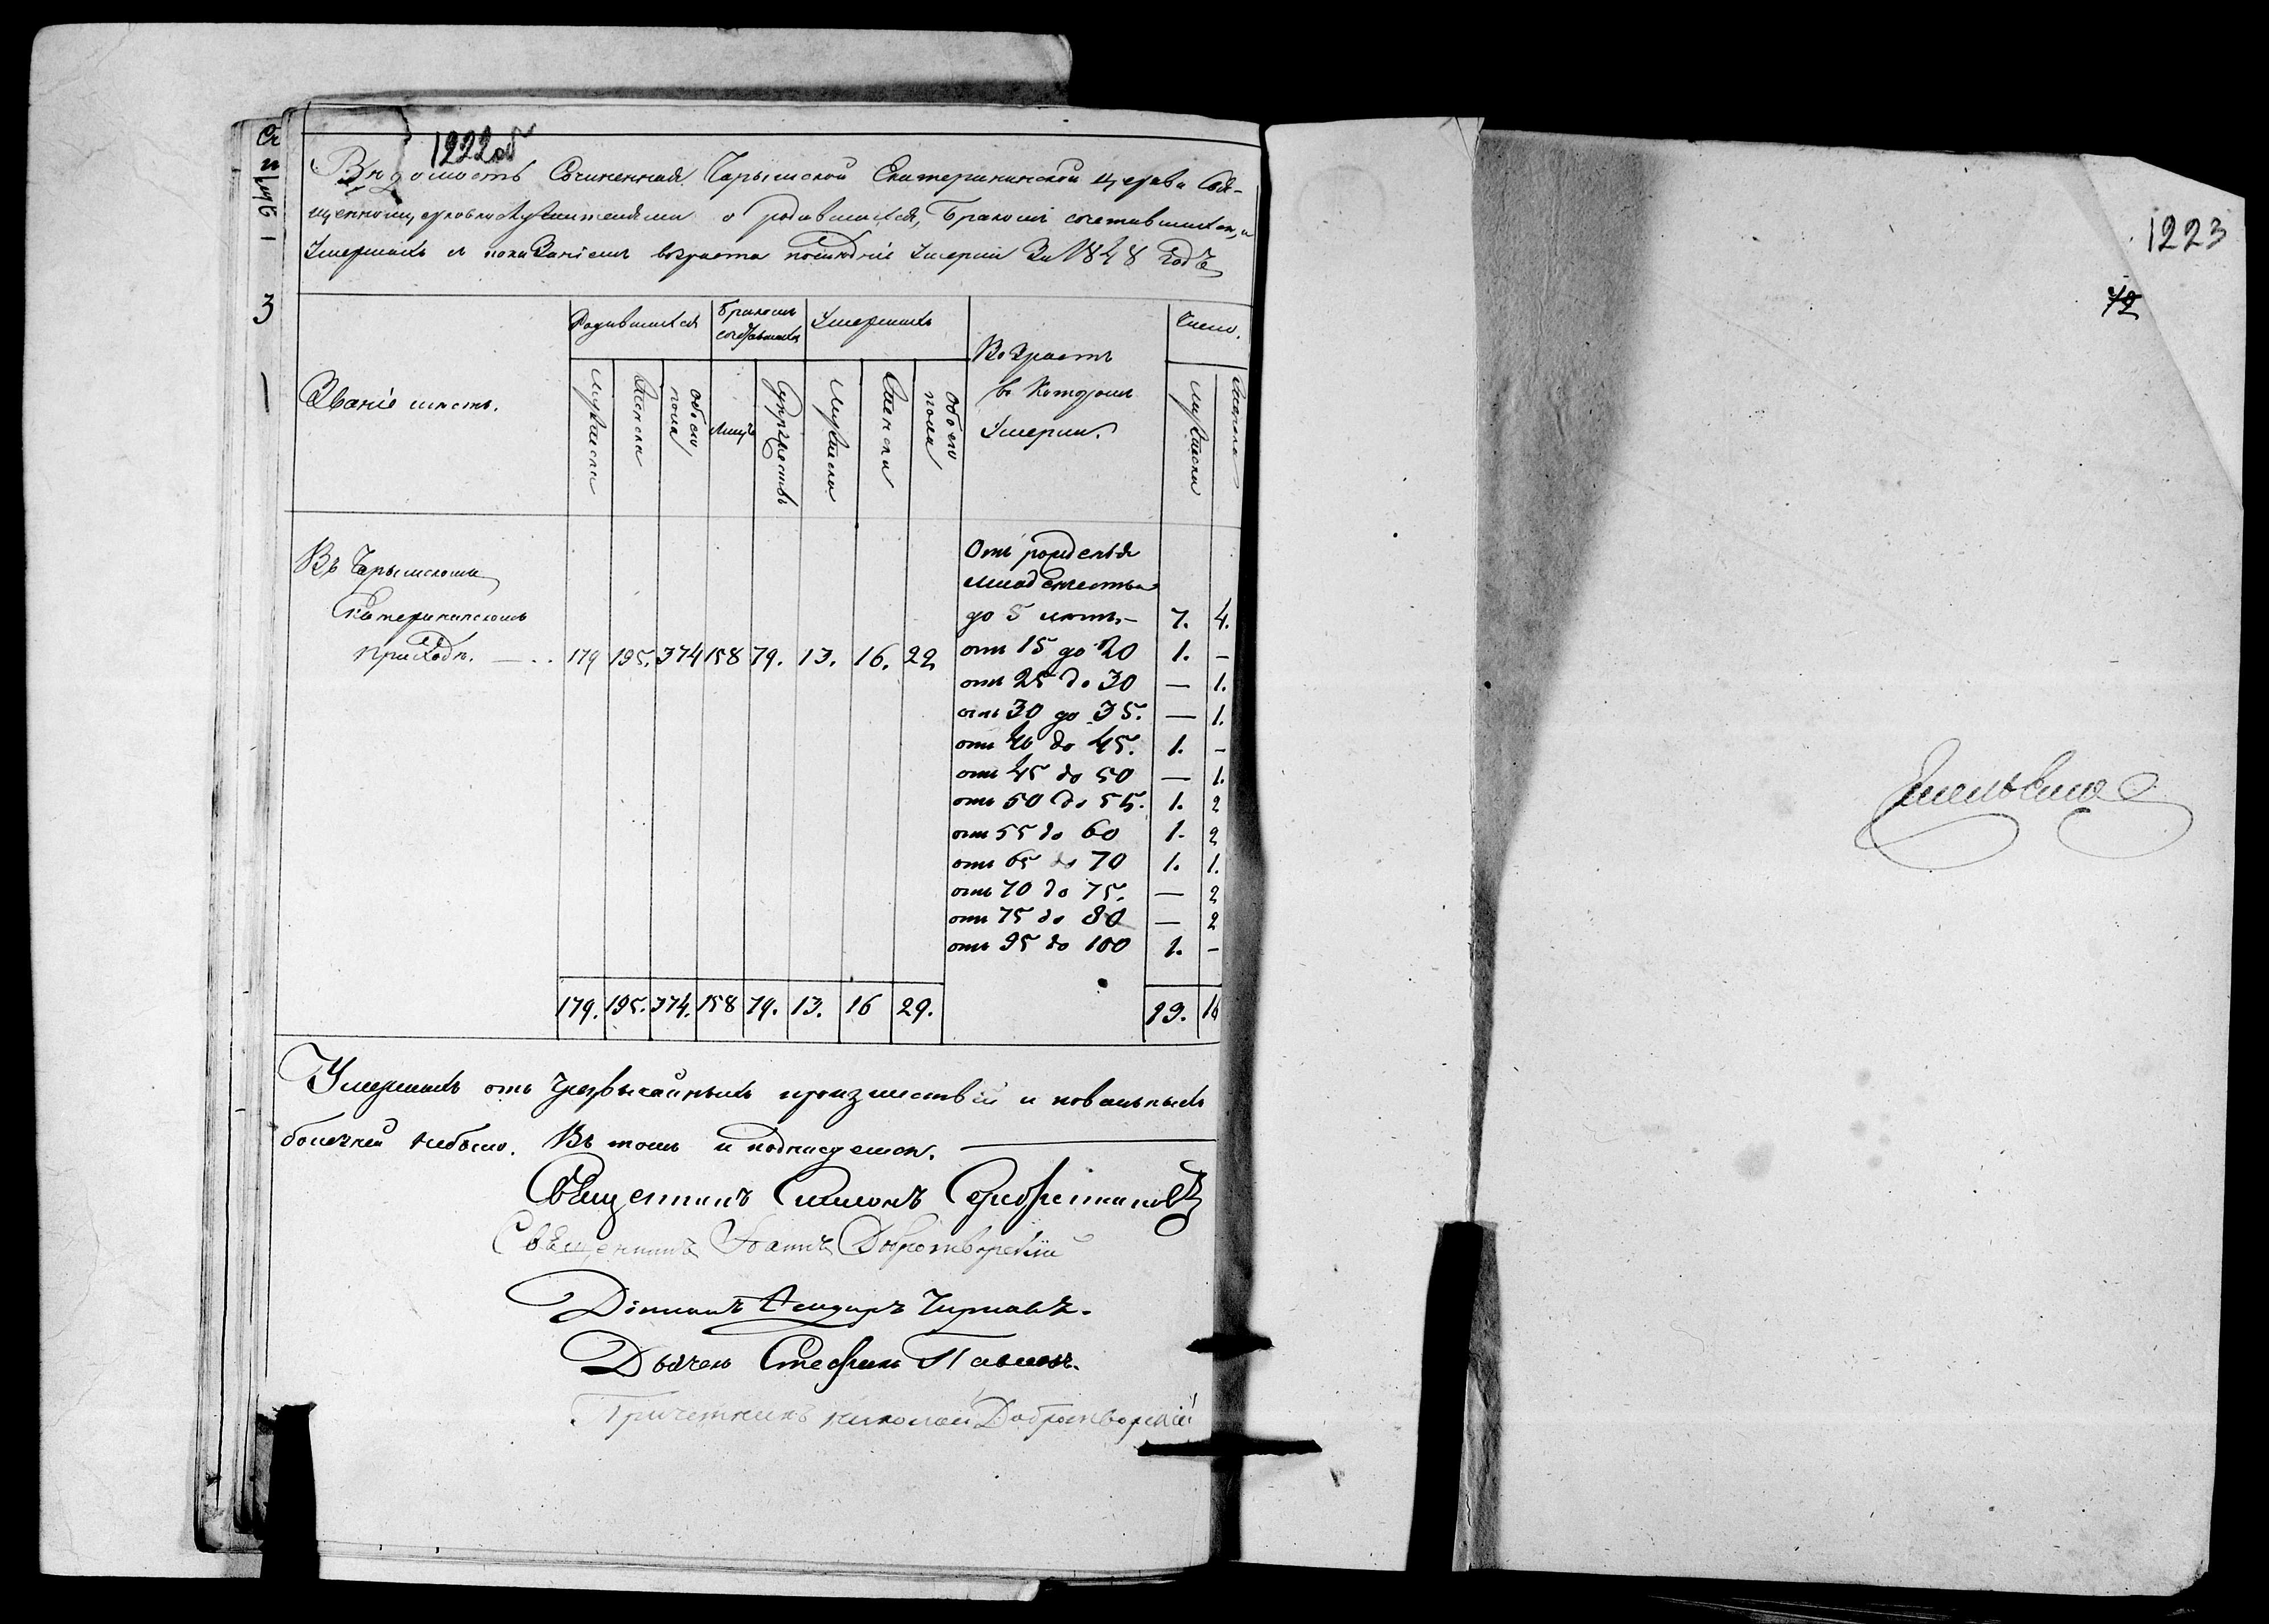 1222об
Вѣдомость Сочиненная Чарышской Екатерининской церкви Свя-
щенноцерковнослужителями о родившихся, Бракомъ сочетавшихся, и
Умершихъ съ показаніемъ возраста послѣдніе Умерли За 1848 Годъ
Званіе мѣстъ.
Родившихся
Бракомъ сочетавшихся
Умершихъ
Возрастъ
въ Которомъ
Умерли.
Число.
Мужеска
Женска
обоего пола
Лицъ
Супружествъ
Мужеска
Женска
Обоего пола
Мужеска
Женска
Въ Чарышскомъ
Екатерининскомъ
приходѣ. — . . 179 195. 374 158 79. 13. 16. 29
Отъ рожденія
младенчества
до 5 лѣтъ,– 7. 4.
отъ 15 до 20 1. –
отъ 25 до 30 — 1.
отъ 30 до 35. — 1.
отъ 40 до 45. 1. –
отъ 45 до 50 — 1.
отъ 50 до 55. 1. 2
отъ 55 до 60 1. 2
отъ 65 до 70 1. 1.
отъ 70 до 75. — 2
отъ 75 до 80 — 2
отъ 95 до 100 1. –
179. 195. 374. 158 79. 13. 16 29. 13. 16
Умершихъ отъ Чрезвычайныхъ произшествій и повальныхъ
болезней небыло. Въ томъ и подписуемся.
Священникъ Симеонъ Серебренниковъ
Священникъ Іоаннъ Добротворскій
Діаконъ
Дьячекъ Стефанъ Павловъ.
Причетникъ Николай Добротворскій
3
1223
72